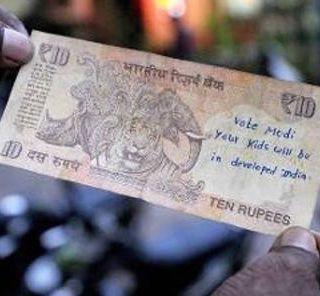 ₹10
भारतीय रिज़र्व बैंक
₹10
Vote Modi
Your Kids will be
in developed India.
10 दस रुपये
TEN RUPEES